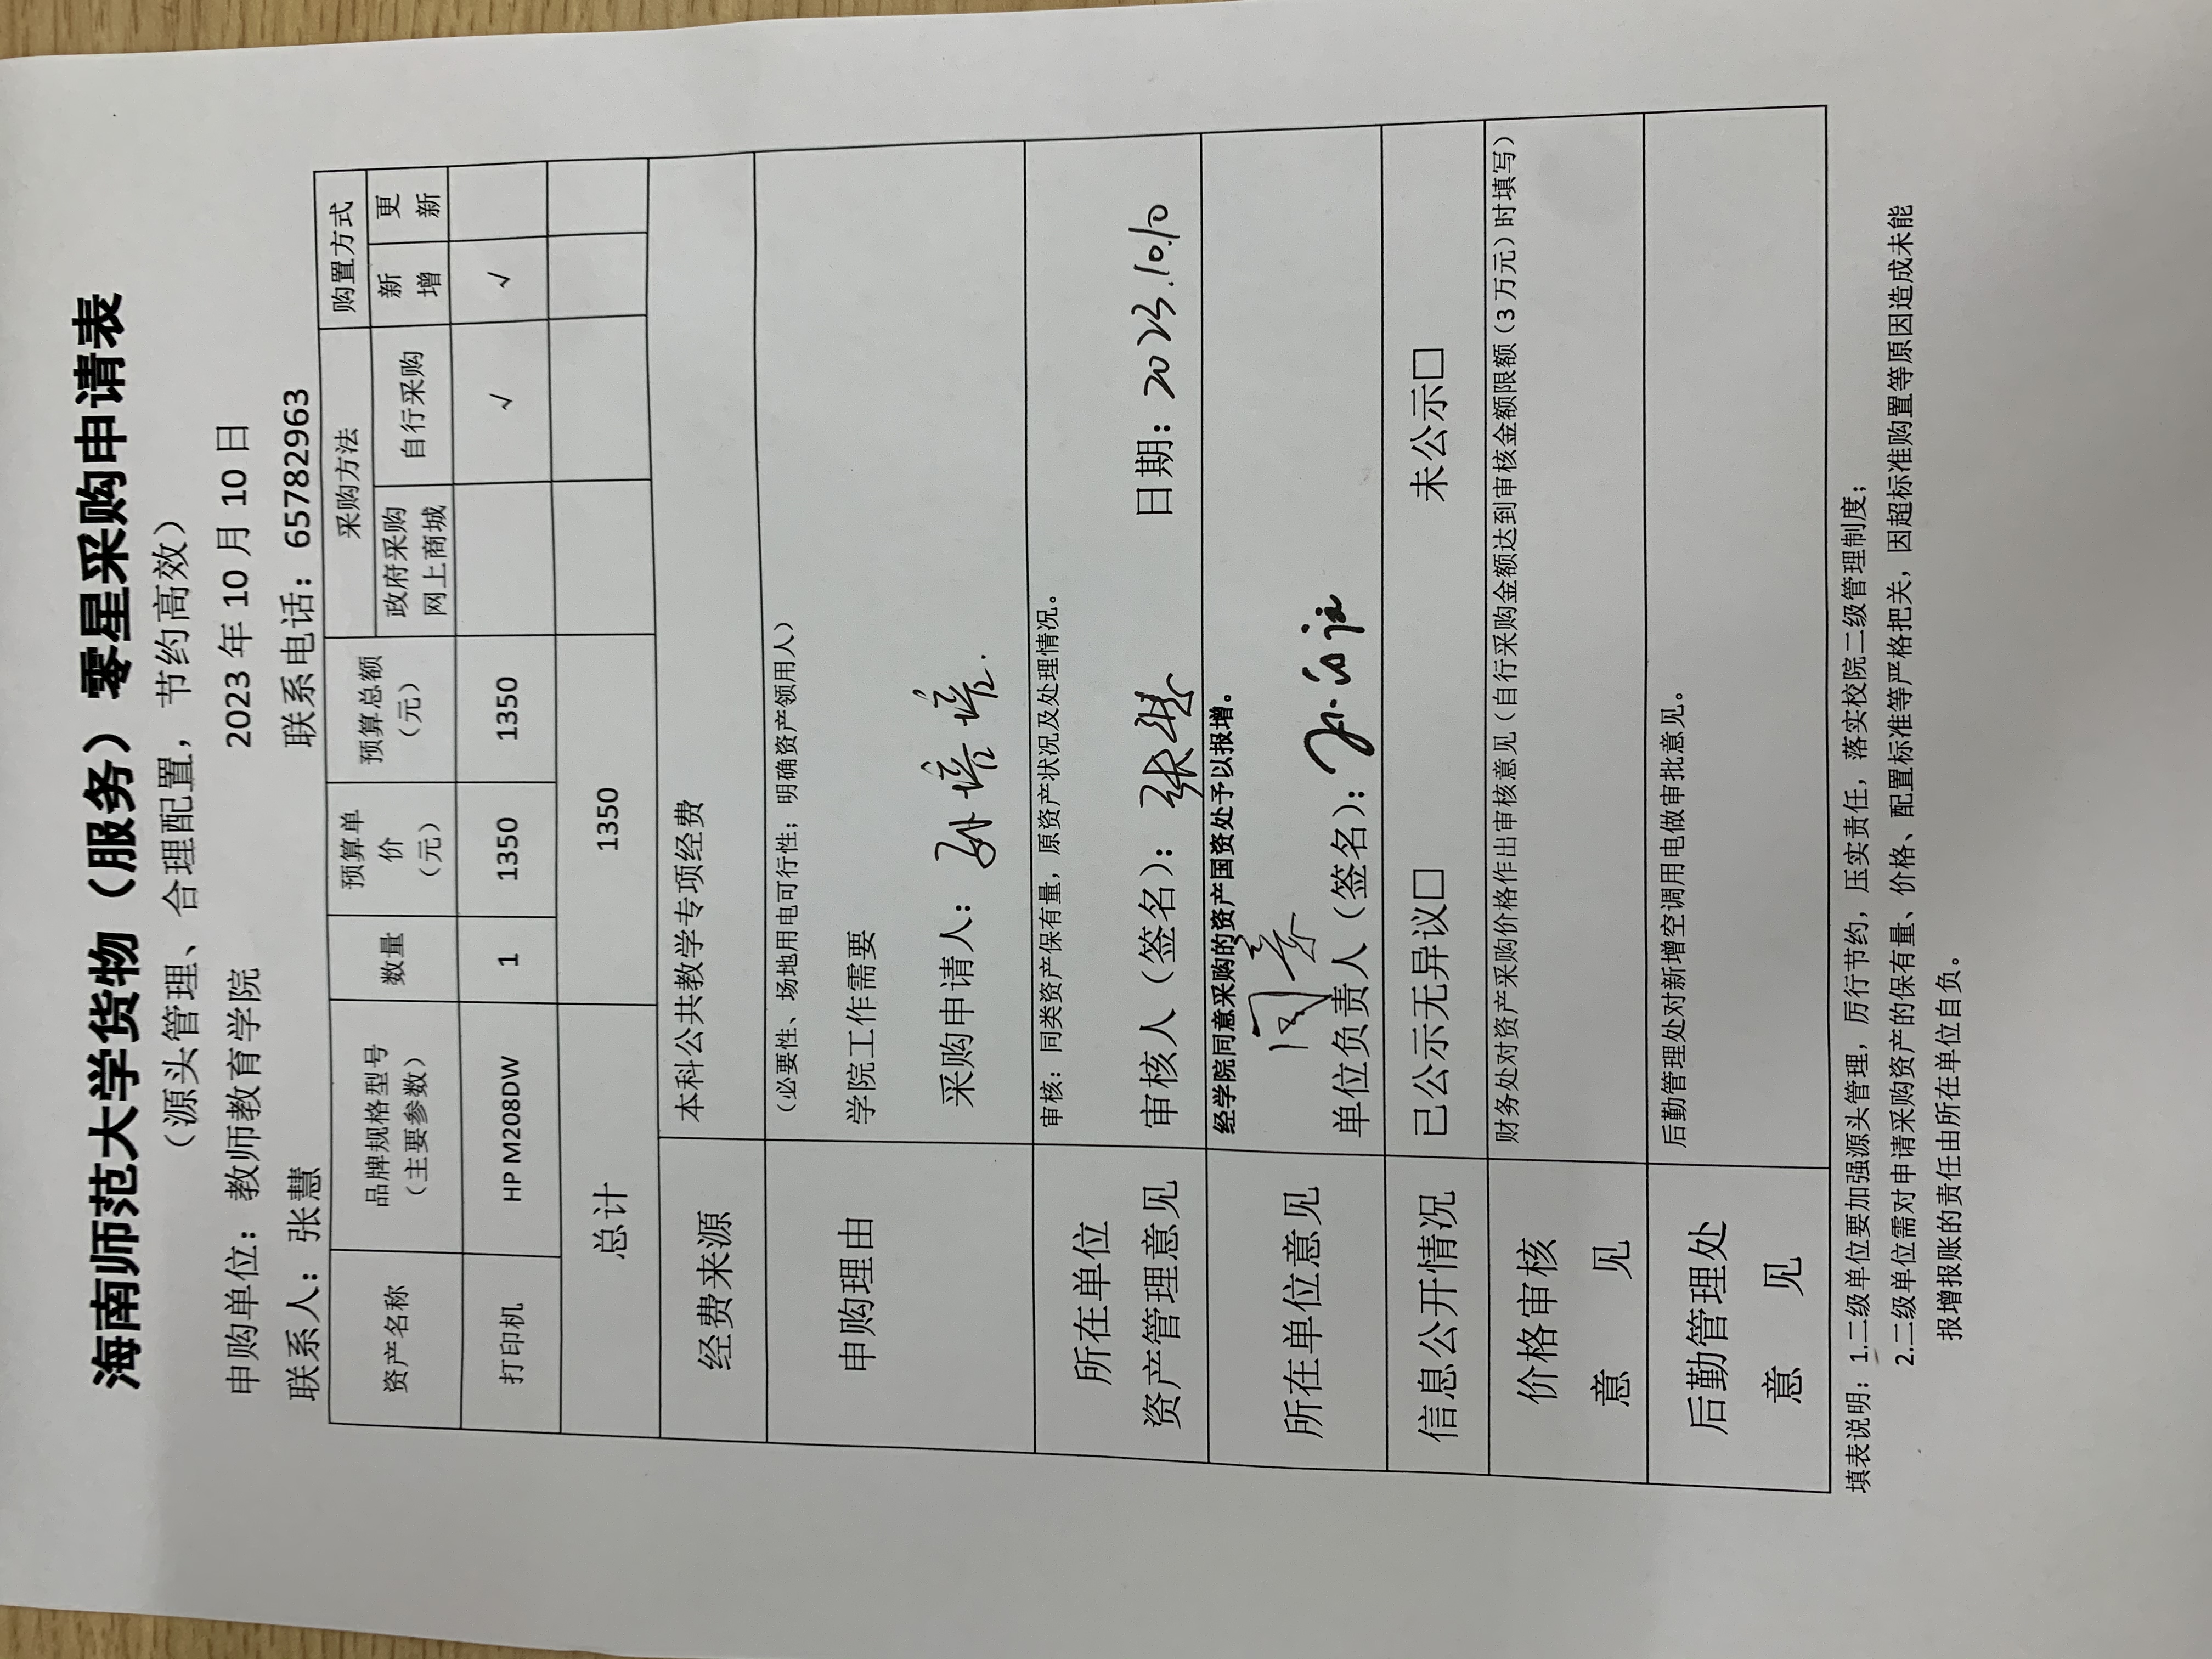 海南师范大学货物（服务）零星采购申请表
（源头管理、合理配置，节约高效）
申购单位：教师教育学院 2023 年 10 月 10 日
联系人：张慧 联系电话：65782963
资产名称 品牌规格型号（主要参数） 数量 预算单价（元） 预算总额（元） 采购方法 购置方式
政府采购网上商城 自行采购 新增 更新
打印机 HP M208DW 1 1350 1350 √ √
总计 1350
经费来源 本科公共教学专项经费
申购理由 （必要性、场地用电可行性；明确资产领用人）
学院工作需要
采购申请人：孙培培
所在单位资产管理意见 审核：同类资产保有量，原资产状况及处理情况。
审核人（签名）：张慧 日期：2023.10.10
所在单位意见 经学院同意采购的资产国资处予以报增。
同意
单位负责人（签名）：
信息公开情况 已公示无异议□ 未公示□
价格审核意见 财务处对资产采购价格作出审核意见（自行采购金额达到审核金额限额（3 万元）时填写）
后勤管理处意见 后勤管理处对新增空调用电做审批意见。
填表说明：1.二级单位要加强源头管理，厉行节约，压实责任，落实校院二级管理制度；
2.二级单位需对申请采购资产的保有量、价格、配置标准等严格把关，因超标准购置等原因造成未能
报增报账的责任由所在单位自负。